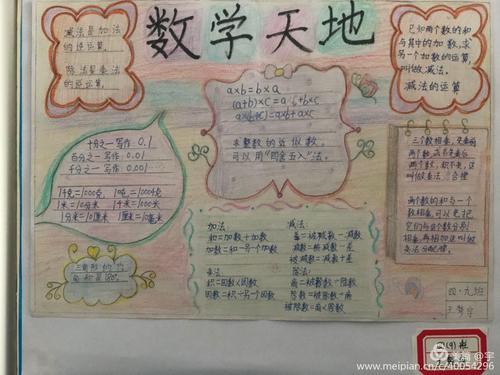 数学天地
减法是加法
的逆运算。
除法是乘法
的逆运算。
a×b=b×a
(a+b)×c=a
b+b×c
求整数的近似数,
可以用"四舍五入"法。
已知两个数的和
与其中的加数,求
另一个加数的运算,
叫做减法。
减法的运算
十分之一写作 0.1
百分之一写作 0.01
千分之一写作 0.001
1千克=1000克
1米=10分米
1千米=1000米
1分米=10厘米
1厘米=10毫米
三角形的内
角和是180°
加法:
和=加数+加数
加数=和-另一个加数
乘法:
积=因数×因数
因数=积÷另一个因数
减法:
差=被减数-减数
减数=被减数-差
被减数=减数+差
除法:
商=被除数÷除数
除数=被除数÷商
被除数=商×除数
三个数相乘,先乘前
两个数,或者先乘后
两个数,积不变,这
叫做乘法
合律
两个数的和与一个
数相乘,可以先把
它们与这个数分别
相乘,再相加这叫做
乘法分配律。
www.meipian.cn/c/40054296